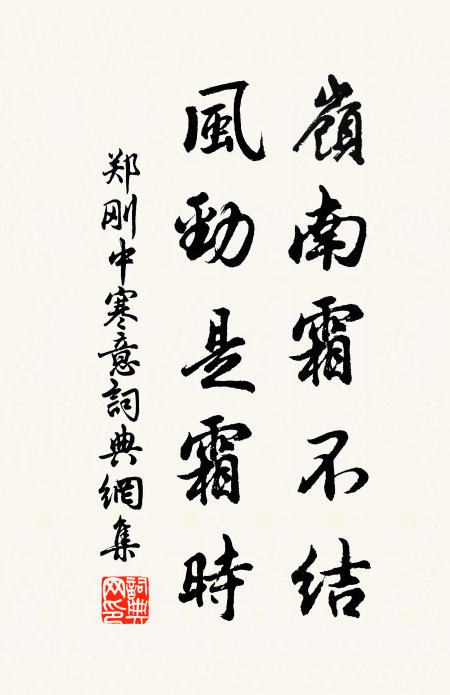 嶺南霜不结
風勁是霜時
郑刚中寒意詞典網集
詞典網印